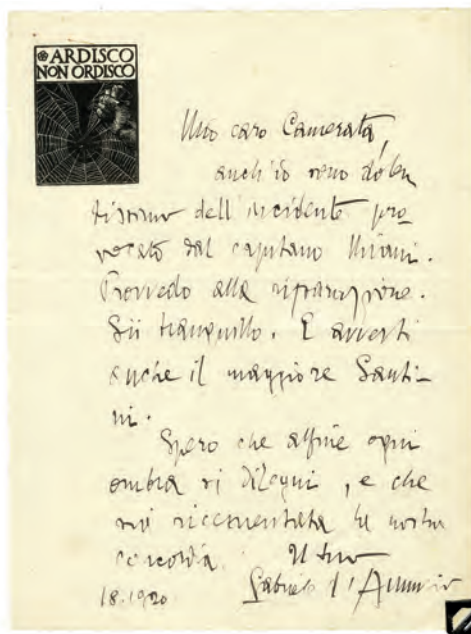 ARDISCO
NON ORDISCO
Mio caro Camerata,
anch'io sono dolen
tissimo dell'incidente pro-
vocato dal capitano Miani.
Provvedo alla riparazione.
Sii tranquillo. E avverti
anche il maggiore Santi-
ni.
Spero che alfine ogni
ombra si dilegui, e che
sia ricementata la nostra
concordia. Il tuo
18.1920 Gabriele d'Annunzio